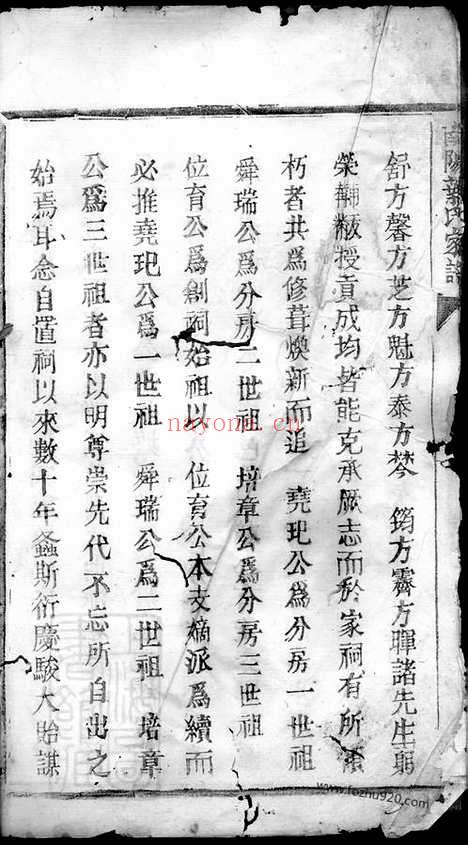 南陽葉氏家譜
舒方馨方芝方魁方泰方棽　筠方霖方暉諸先生躬
榮黼黻授貢成均皆能克承厥志而於家祠有所
朽者共爲修葺煥新而追　堯玘公爲分房一世祖
舜瑞公爲分房二世祖　培章公爲分房三世祖
位育公爲創祠始祖以　位育公本支嫡派爲續而
必推堯玘公爲一世祖　舜瑞公爲二世祖　培章
公爲三世祖者亦以明尊崇先代不忘所自出之
始焉耳念自置祠以來數十年螽斯衍慶駿大貽謀
nayona.cn
www.fozhu920.com